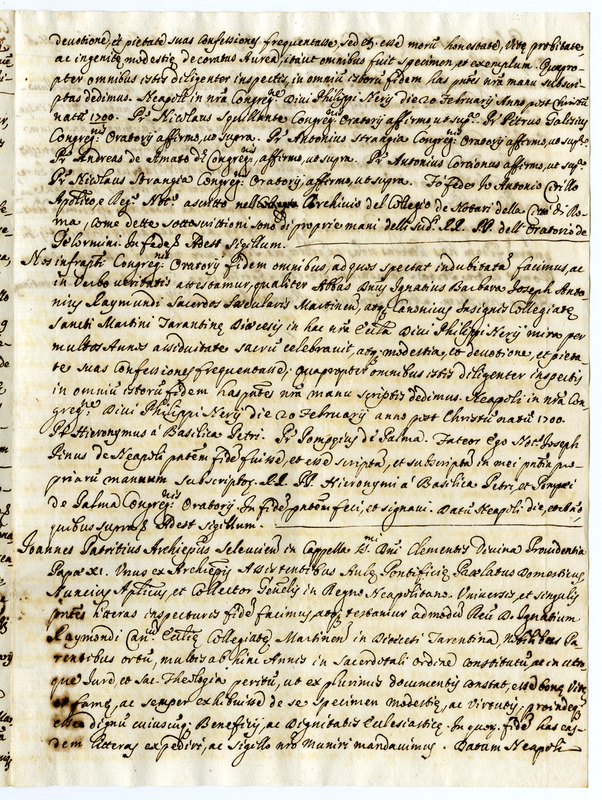 devotione, et pietate suas Confessiones frequentasse, sed et esse morũ honestate, Vitę probitate,
ac ingenitę modestię decoratus Aurea, ita ut omnibus fuit specimen, et exemplum. Quapro-
pter omnibus istis diligenter inspectis, in omniũ istorũ fidem has pñtes nrã manu subscri-
ptas dedimus. Neapoli in nrã Congreg.ne Divi Philippi Nerij die 20 Februarij Anno post Christũ
natũ 1700. Pr. Nicolaus Congreg.nis Oratorij affirmo, ut sup.a Pr. Petrus
Congreg.nis Oratorij affirmo, ut supra. Pr. Antonius Strangia Congreg.nis Oratorij affirmo, ut sup.a
Pr. Andreas de Amato d.ę Congreg.nis, affirmo, ut supra. Pr. Antonius affirmo, ut sup.a
Pr. Nicolaus Strangia Congreg.nis Oratorij, affirmo, ut supra. Fò fede Io Antonio Cirillo
Aplico, e Reg.o Not.o ascritto nell' Archivio del Collegio de Notari della Città di Ro-
ma, come dette sottoscrittioni sono di proprie mani delli sud.i PP. dell' Oratorio de
Gelormini. In fide &c. Adest Sigillum.
Nos infrapti Congreg.nis Oratorij fidem omnibus, ad quos spectat indubitatã facimus, ac
in Verbo veritatis attestamur, qualiter Dñus Ignatius Barbara Joseph Anto-
nius Raymundi Sacerdos Sęcularis Martinen, atq; Canonicus Insignis Collegiatę
Sancti Martini Tarantinę Diocesis in hac nrã Ecclã Divi Philippi Nerij mira per
multos Annos assiduitate sacrũ celebravit, atq; modestia, et devotione, et pieta-
te suas Confessiones frequentasse; quapropter omnibus istis diligenter inspectis
in omniũ istorũ fidem has pñtes nrã manu scriptas dedimus. Neapoli in nrã Con-
greg.ne Divi Philippi Nerij die 20 Februarij anno post Christũ natũ 1700.
Pr. Hieronymus à Basilica Petri. Pr. Pompeius de Palma. Fateor Ego Not.s Joseph
Pinus de Neapoli pñtem fidẽ fuisse, et esse scriptã, et subscriptã in mei pñtia pro-
priarũ manuum subscript. PP. Hieronymi à Basilica Petri, et Pompei
de Palma Congreg.nis Oratorij. In fidẽ pñtem feci, et signavi. Datũ Neapoli die, et Año,
quibus supra &c. Adest Sigillum.
Joannes Patritius Archiepũs Seleucien in Cappella SS.mi Dñi Clementis Divina Providentia
Papę XI. Unus ex Archiepis Assistentibus Aulę Pontificię Pręlatus Domesticus
Nuncius Aplicus, et Collector Genẽlis in Regno Neapolitano. Universis, et singulis
pñtes literas inspecturis fidẽ facimus, atq; testamur admodũ Reũ D. Ignatium
Raymondi Can.cum Ecclię Collegiatę Martinen in Diocesi Tarentina, nobilibus Pa-
rentibus ortũ, multis ab hinc Annis in Sacerdotali ordine constitutũ, ac in utro-
que Jure, et Sac. Theologia peritũ, ut ex plurimis documentis constat, esse bonę Vitę,
et famę, ac semper exhibuisse de se specimen modestię, ac Virtutis, proindeq;
esse dignũ cuiuscũq; Beneficij, ac Dignitatis Ecclesiasticę. In quor. fidẽ has eas-
dem literas expediri, ac sigillo nrõ muniri mandavimus. Datum Neapoli